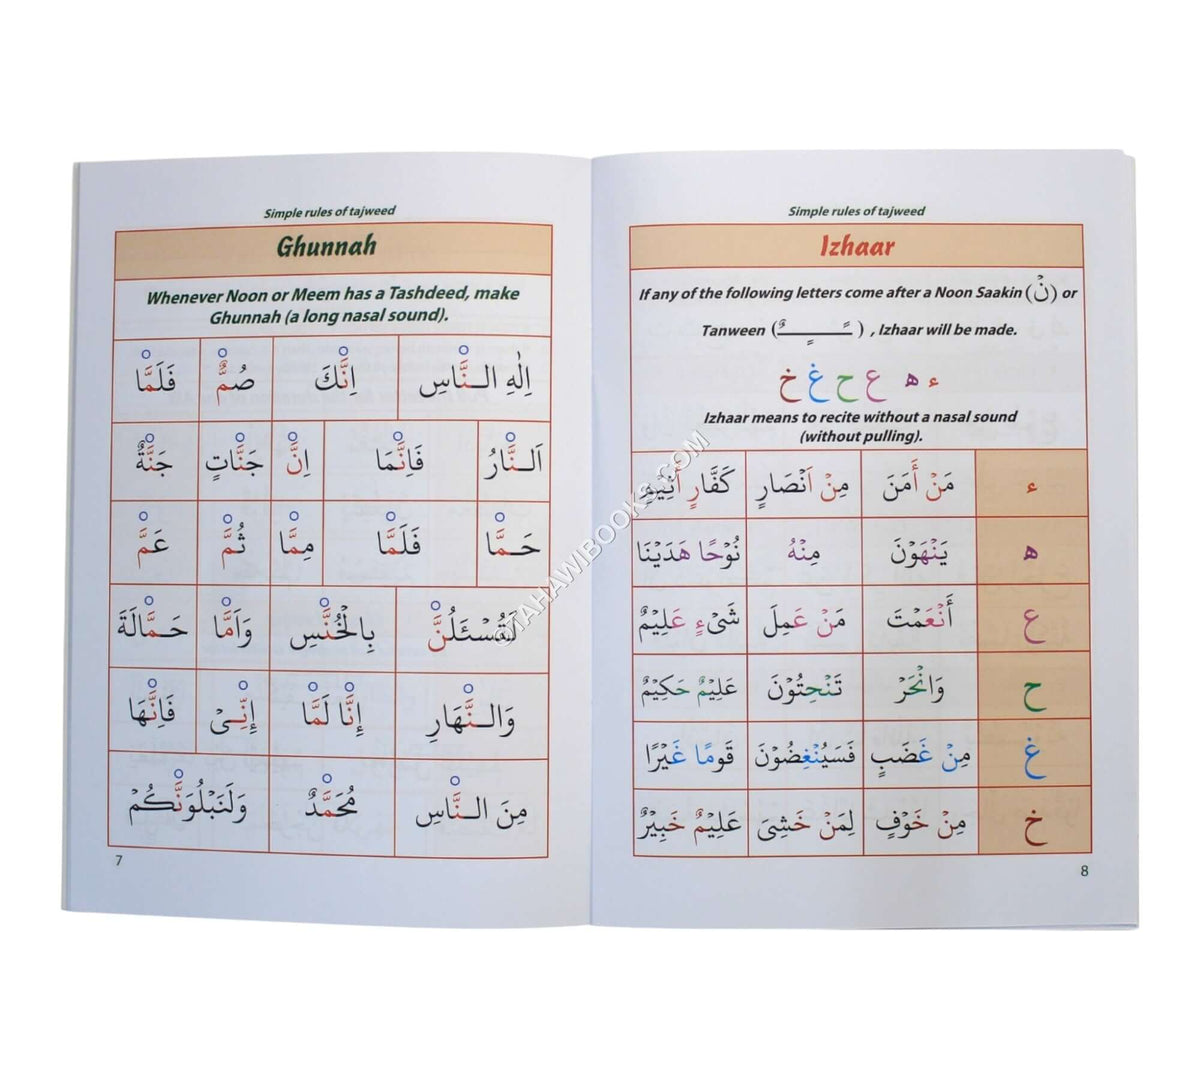 Simple rules of tajweed
Ghunnah
Whenever Noon or Meem has a Tashdeed, make
Ghunnah (a long nasal sound).
اِلٰهِ الـنَّاسِ اِنَّكَ صُمٌّ فَلَمَّا
اَلـنَّارُ فَاِنَّمَا اِنَّ جَنَّاتٍ جَنَّةٌ
حَـمَّا فَلَمَّا مِمَّا ثُمَّ عَمَّ
لَتُسْـَٔلُنَّ بِالْخُنَّسِ وَاَمَّا حَـمَّالَةَ
وَالـنَّهَارِ إِنَّا لَمَّا إِنِّـىْ فَاِنَّهَا
مِنَ الـنَّاسِ مُحَمَّدٌ وَلَنَبْلُوَنَّكُمْ
7
Simple rules of tajweed
Izhaar
If any of the following letters come after a Noon Saakin (نْ) or
Tanween (ـًـٍـٌ) , Izhaar will be made.
ء ه ع ح غ خ
Izhaar means to recite without a nasal sound
(without pulling).
ء مَنْ أَمَنَ مِنْ اَنْصَارٍ كَفَّارٍ اَثِيْمٍ
ه يَنْهَوْنَ مِنْهُ نُوْحًا هَدَيْنَا
ع أَنْعَمْتَ مَنْ عَمِلَ شَىْءٍ عَلِيْمٌ
ح وَانْحَرْ تَنْحِتُوْنَ عَلِيْمٌ حَكِيْمٌ
غ مِنْ غَضَبٍ فَسَيُنْغِضُوْنَ قَومًا غَيْرًا
خ مِنْ خَوْفٍ لِمَنْ خَشِىَ عَلِيْمٌ خَبِيْرٌ
8
©TAHAWIBOOKS.COM